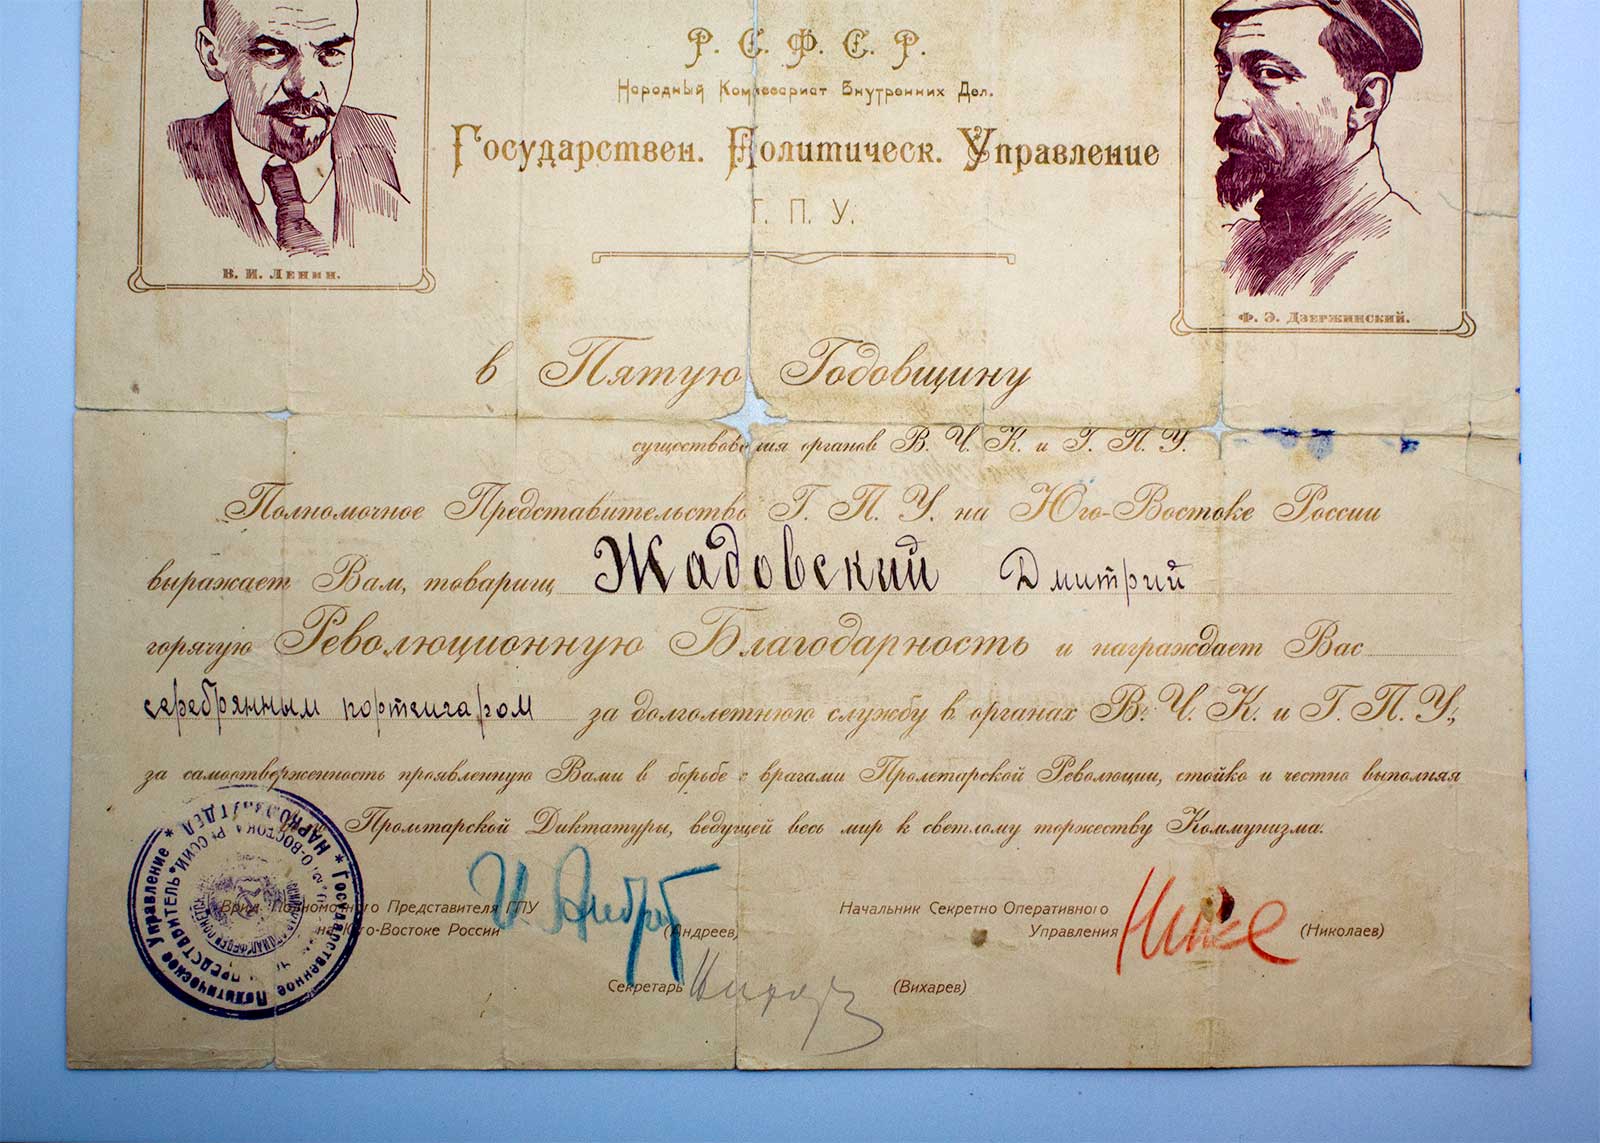 Р. С. Ф. С. Р.
Народный Комиссариат Внутренних Дел.
Государствен. Политическ. Управление
Г. П. У.
В. И. Ленин.
Ф. Э. Дзержинский.
в Пятую Годовщину
существования органов В. Ч. К. и Г. П. У.
Полномочное Представительство Г. П. У. на Юго-Востоке России
выражает Вам, товарищ Жадовский Дмитрий
горячую Революционную Благодарность и награждает Вас
серебрянным портсигаром за долголетнюю службу в органах В. Ч. К. и Г. П. У.,
за самоотверженность проявленную Вами в борьбе с врагами Пролетарской Революции, стойко и честно выполняя
Прольтарской Диктатуры, ведущей весь мир к светлому торжеству Коммунизма.
Врид. Полномочного Представителя ГПУ
на Юго-Востоке России (Андреев)
Начальник Секретно Оперативного
Управления (Николаев)
Секретарь (Вихарев)
* Государственное Политическое Управление *